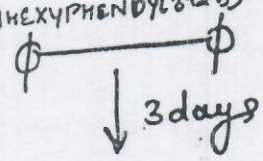 IHEXYPHENDYL
ϕ — ϕ
3 days